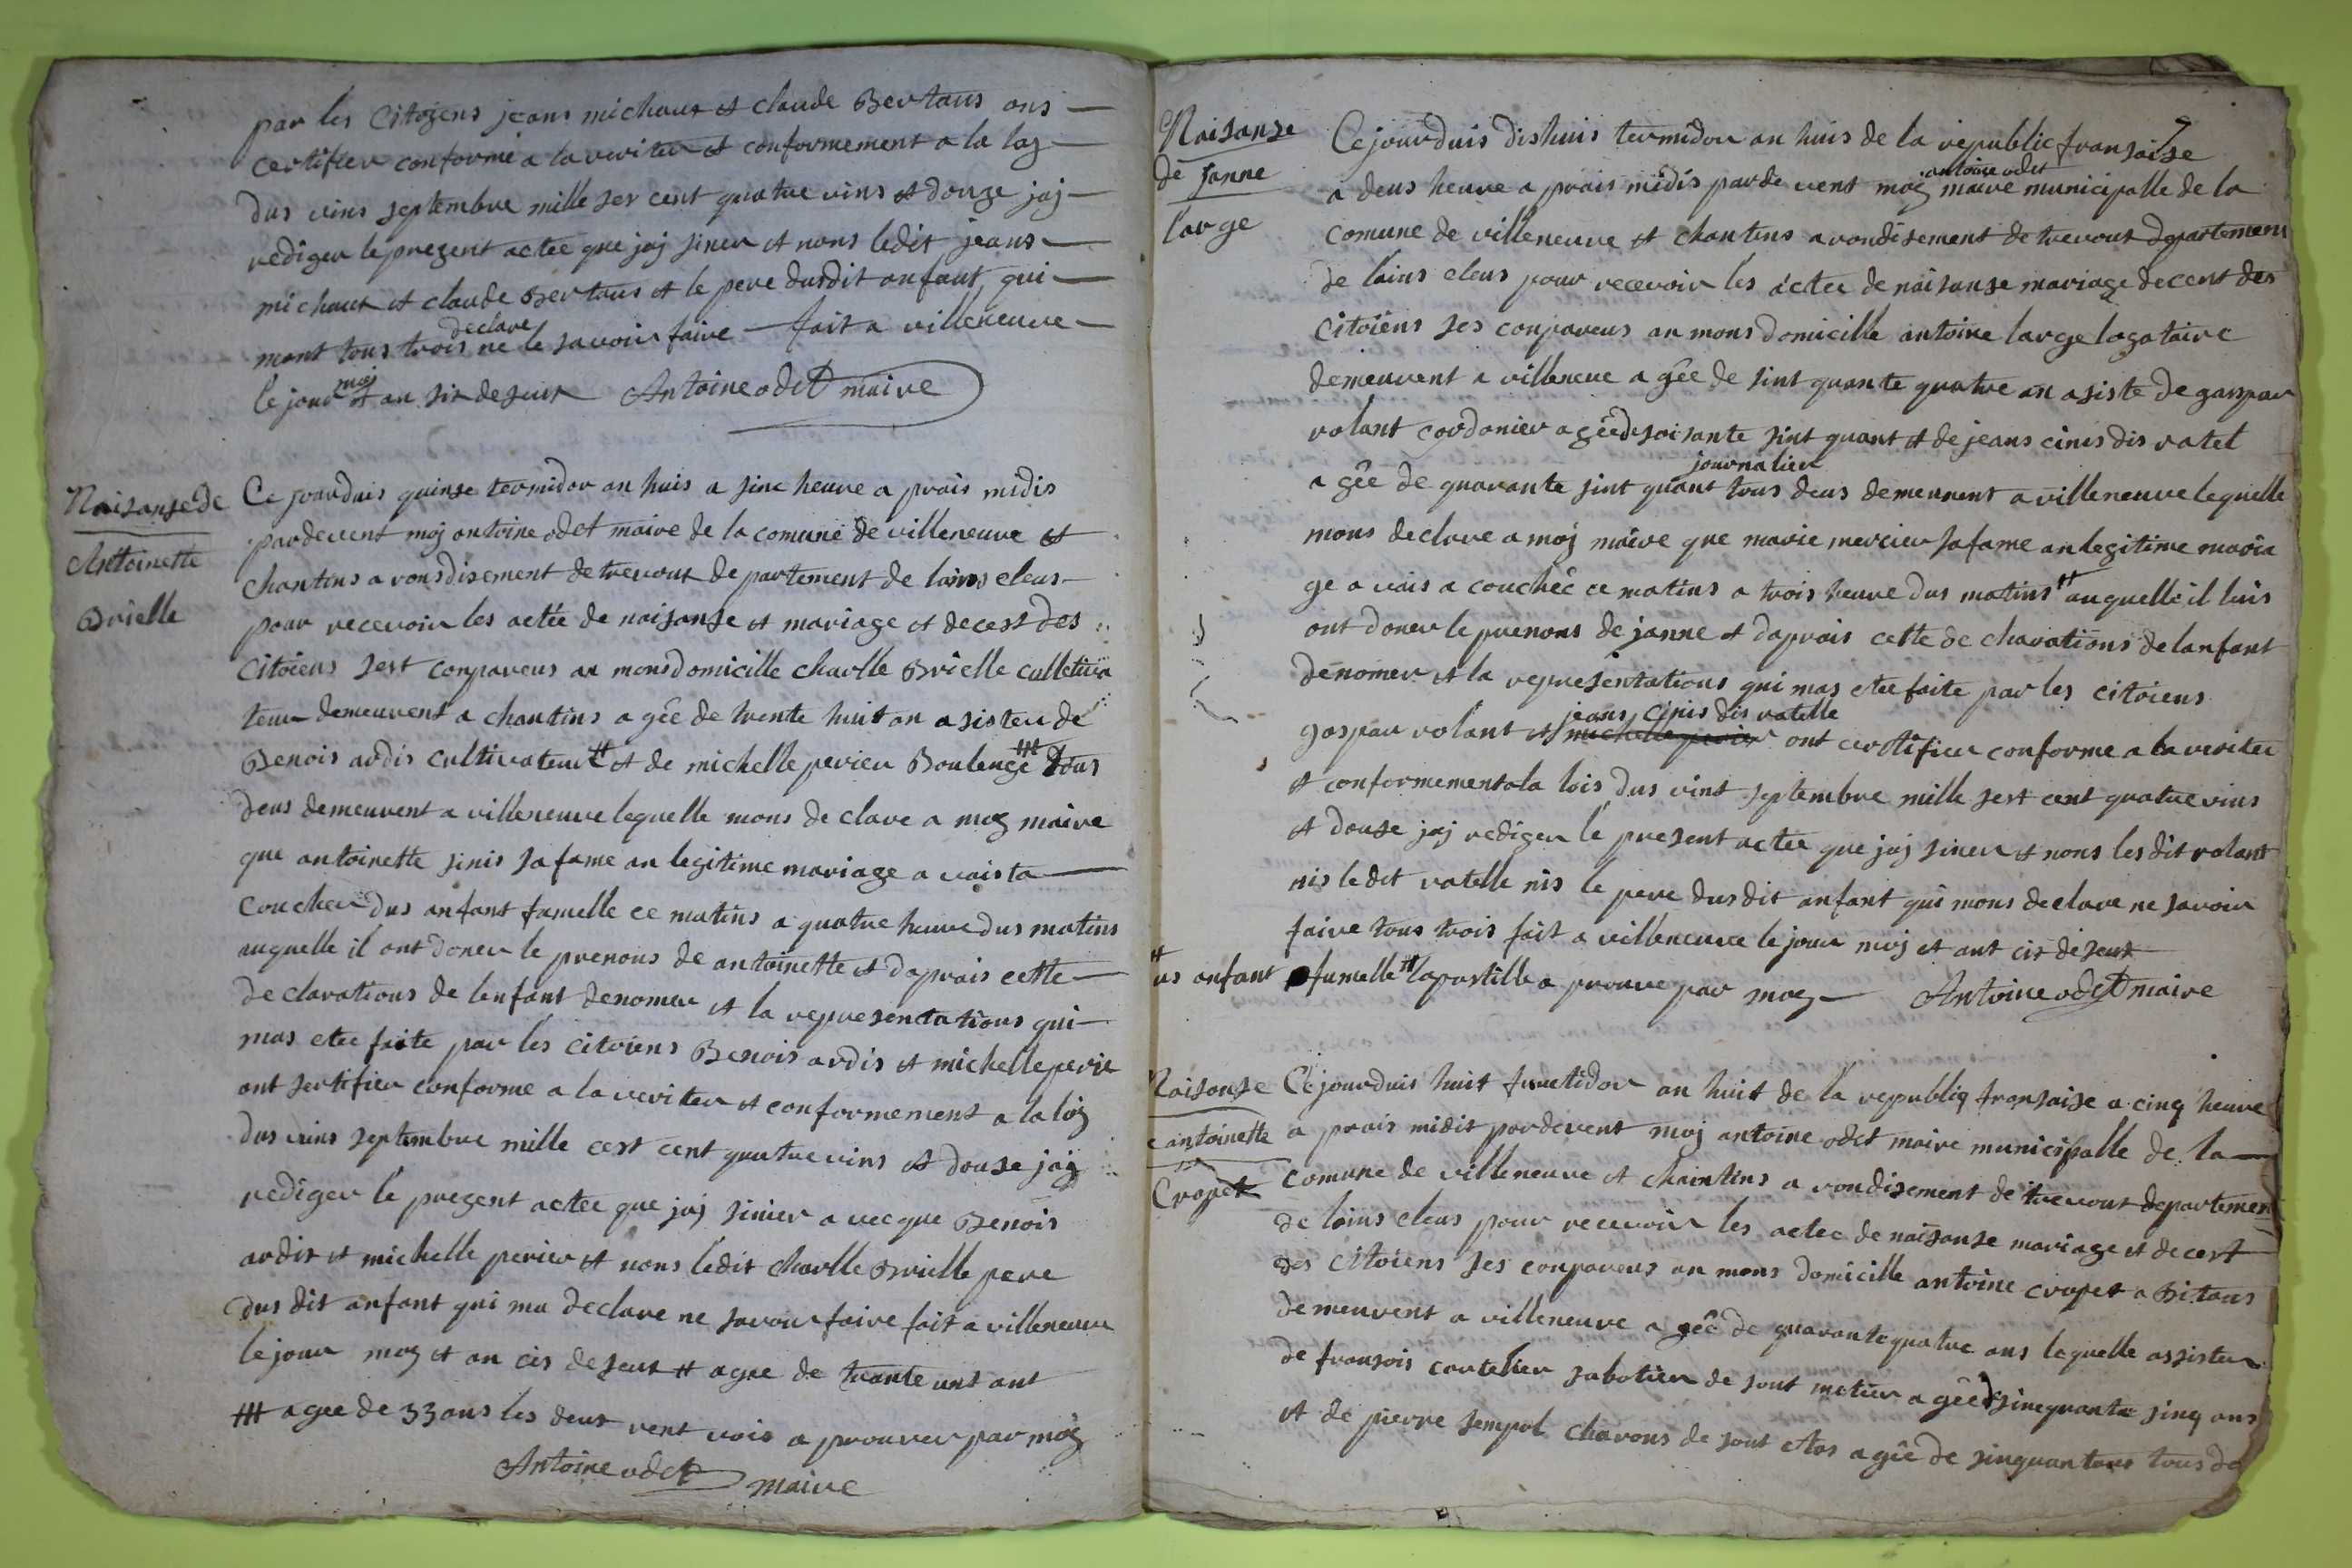 par les Citoyens jeans michaux et claude Bertaus ons
certifier conforme a la veriter et conformement a la loy
dus vins septembre mille ser cent quatre vins et douze jaj
rediger le prezent actee que jaj siner et nons ledit jeans
michaux et claude Bertaus et le pere dusdit anfant qui
mont tous trois declare ne le savoir faire fait a villeneuve
le jour moj et an sit deseur Antoine odet maire
Naisanse de
Antoinette
Brielle
Ce jourduis quinse termidor an huis a sine heure a prais midis
pardevent moj antoine odet maire de la comune de villeneuve et
chantins a ronsdisement de trevout de partement de lains eleus
pour recevoir les actée de naisanse et mariage et decest des
citoiens sest conpareus an monsdomicille charlle Brielle culletiva
teur demeurent a chantins a gée de trente huit an a sister de
Benois ardis cultivateur # et de michelle perier Boulengé ## tous
deus demeurent a villeneuve lequelle mons de clare a moy maire
que antoinette sinis sa fame an legitime mariage a vaista
coucher dus anfant famelle ce matins a quatre heure dus matins
auquelle il ont doner le prenons de antoinette et daprais cette
declarations de lenfant denomer et la representations qui
mas etee faite par les citoiens Benois ardis et michelle perie
ont sertifier conforme a la veriter et conformement a la loy
dus vins septembre mille cest cent quatre vins et douse jaj
rediger le prezent actee que jaj sinier a vecque Benois
ardit et michelle perier et nons ledit charlle Brielle pere
dus dit anfant qui ma declare ne savoir faire fait a villeneuve
le jour moy et an cis deseur # agee de trante unt ant
## agee de 33 ans les deux rent vois a prouver par moy
Antoine odet maire
7
Naisanse
de janne
large
Ce jourduis dishuis termidor an huis de la republic fransaise
a deus heure a prais midis parde vent moy antoine odet maire municipalle de la
comune de villeneuve et chantins a rondisement de trevout departement
de lains eleus pour recevoir les actee de naisanse mariage decest des
citoiens ses conpareus an mons domicille antoine large lagataire
demeurent a villeneve a gée de sint quante quatre an asiste de gaspar
volant cordonier a gée de soisante sint quant et de jeans cinis dis ratel
a gée de quarante sint quant journalier tous deus demeurent a villeneuve lequelle
mons declare a moj maire que marie mercier sa fame an legitime maria
ge a vais a couchée ce matins a trois heure dus matins # auquelle il luis
ont doner le prenons de janne et daprais cette de charations de lanfant
denomer et la representations qui mas etee faite par les citoiens
gaspar volant et jeans cinis dis ratelle ont certifier conforme a la veriter
et conformement a la lois dus vint septembre mille sest cent quatre vins
et douse jaj rediger le present actee que jaj siner et nons les dit volant
nis le dit ratelle nis le pere dusdit anfant qui mons declare ne savoir
faire tous trois fait a villeneuve le jour moj et ant cis deseur
# us anfant famelle # lapostille a prouve par moy Antoine odet maire
Naisanse
antoinette
Cropet
Cejourduis huit fructidor an huit de la republiq fransaise a cinq heure
a prais midit pardevent moj antoine odet maire municipalle de la
comune de villeneuve et chaintins a rondisement de trevout departement
de lains eleus pour recevoir les actee de naisanse mariage et decest
des citoiens ses conpareus an mons domicille antoine cropet a Bitans
demeurent a villeneuve a gée de quarante quatre ans lequelle assister
de fransois cartelier sabotier de sont metier a gée de sinequante sinq ans
et de pierre sempol charons de sont etas a gée de sinquantans tous de